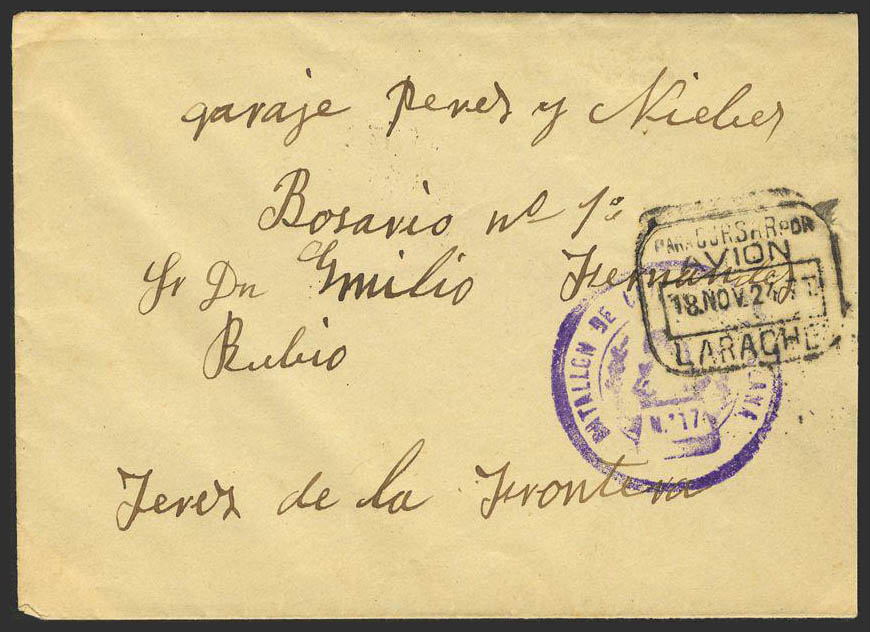 garaje Perez y Nieles
Rosario nº 1º
Sr Dn Emilio Fernandez
Rubio
Jerez de la Frontera
PARA CURSAR POR
AVION
18.NOV.24
LARACHE
BATALLON DE
N.º 17